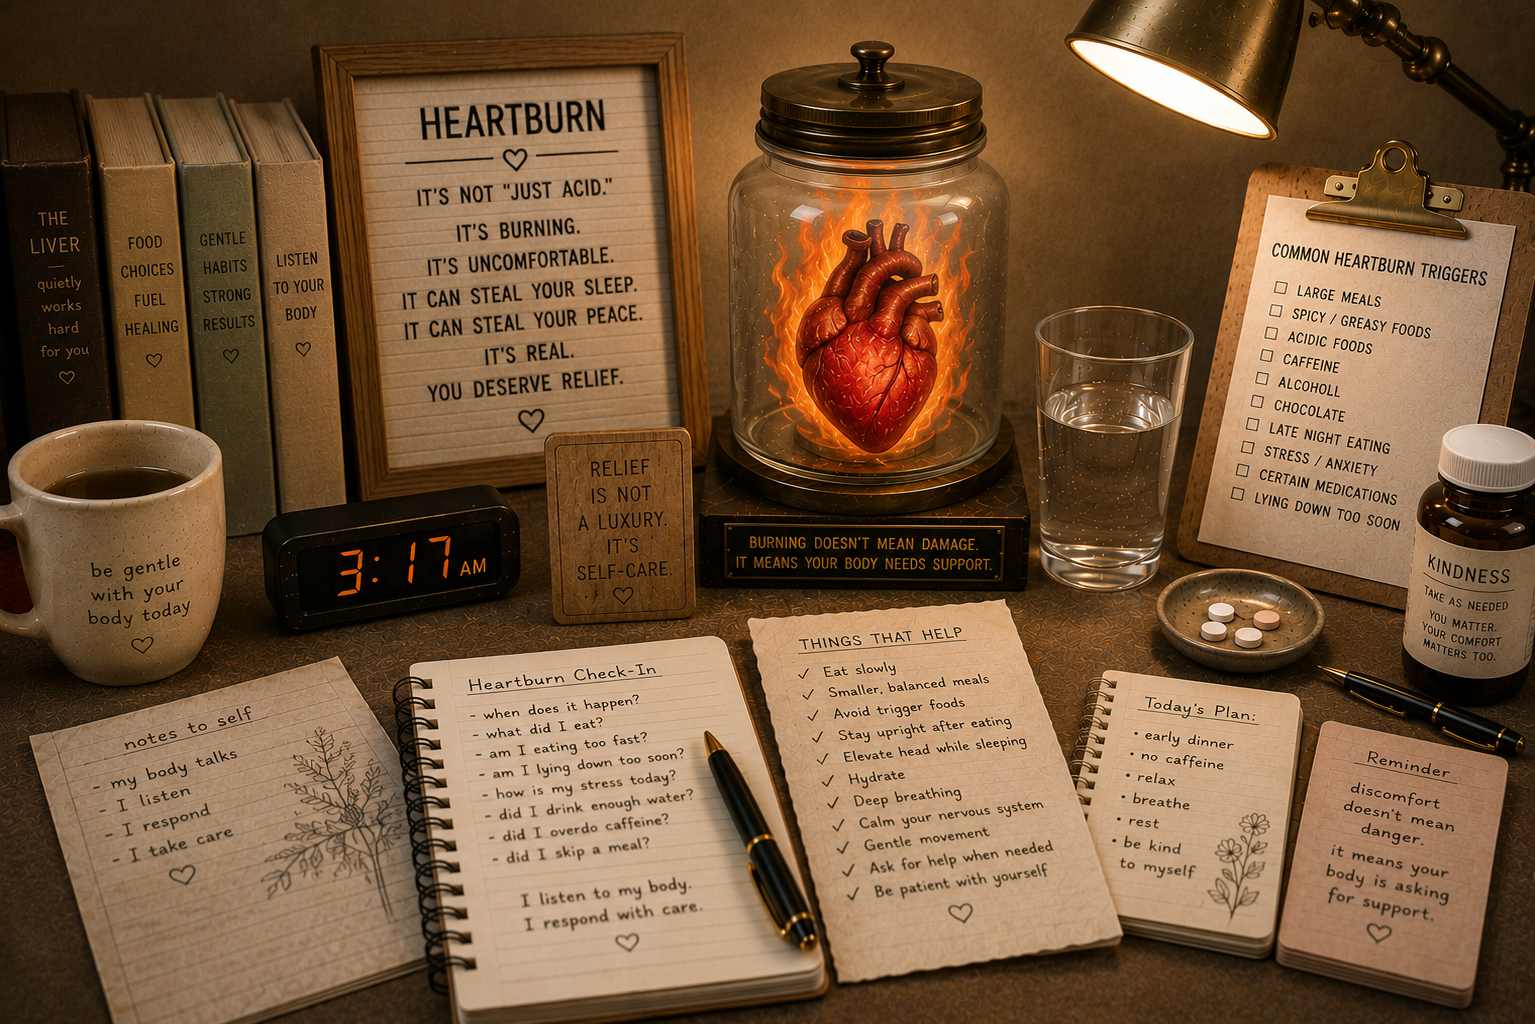 THE
LIVER
quietly
works
hard
for you
FOOD
CHOICES
FUEL
HEALING
GENTLE
HABITS
STRONG
RESULTS
LISTEN
TO YOUR
BODY
HEARTBURN
IT'S NOT "JUST ACID."
IT'S BURNING.
IT'S UNCOMFORTABLE.
IT CAN STEAL YOUR SLEEP.
IT CAN STEAL YOUR PEACE.
IT'S REAL.
YOU DESERVE RELIEF.
COMMON HEARTBURN TRIGGERS
LARGE MEALS
SPICY / GREASY FOODS
ACIDIC FOODS
CAFFEINE
ALCOHOLL
CHOCOLATE
LATE NIGHT EATING
STRESS / ANXIETY
CERTAIN MEDICATIONS
LYING DOWN TOO SOON
be gentle
with your
body today
3:17 AM
RELIEF
IS NOT
A LUXURY.
IT'S
SELF-CARE.
BURNING DOESN'T MEAN DAMAGE.
IT MEANS YOUR BODY NEEDS SUPPORT.
KINDNESS
TAKE AS NEEDED
YOU MATTER.
YOUR COMFORT
MATTERS TOO.
notes to self
- my body talks
- I listen
- I respond
- I take care
Heartburn Check-In
- when does it happen?
- what did I eat?
- am I eating too fast?
- am I lying down too soon?
- how is my stress today?
- did I drink enough water?
- did I overdo caffeine?
- did I skip a meal?
I listen to my body.
I respond with care.
THINGS THAT HELP
✓ Eat slowly
✓ Smaller, balanced meals
✓ Avoid trigger foods
✓ Stay upright after eating
✓ Elevate head while sleeping
✓ Hydrate
✓ Deep breathing
✓ Calm your nervous system
✓ Gentle movement
✓ Ask for help when needed
✓ Be patient with yourself
Today's Plan:
• early dinner
• no caffeine
• relax
• breathe
• rest
• be kind
to myself
Reminder
discomfort
doesn't mean
danger.
it means your
body is asking
for support.